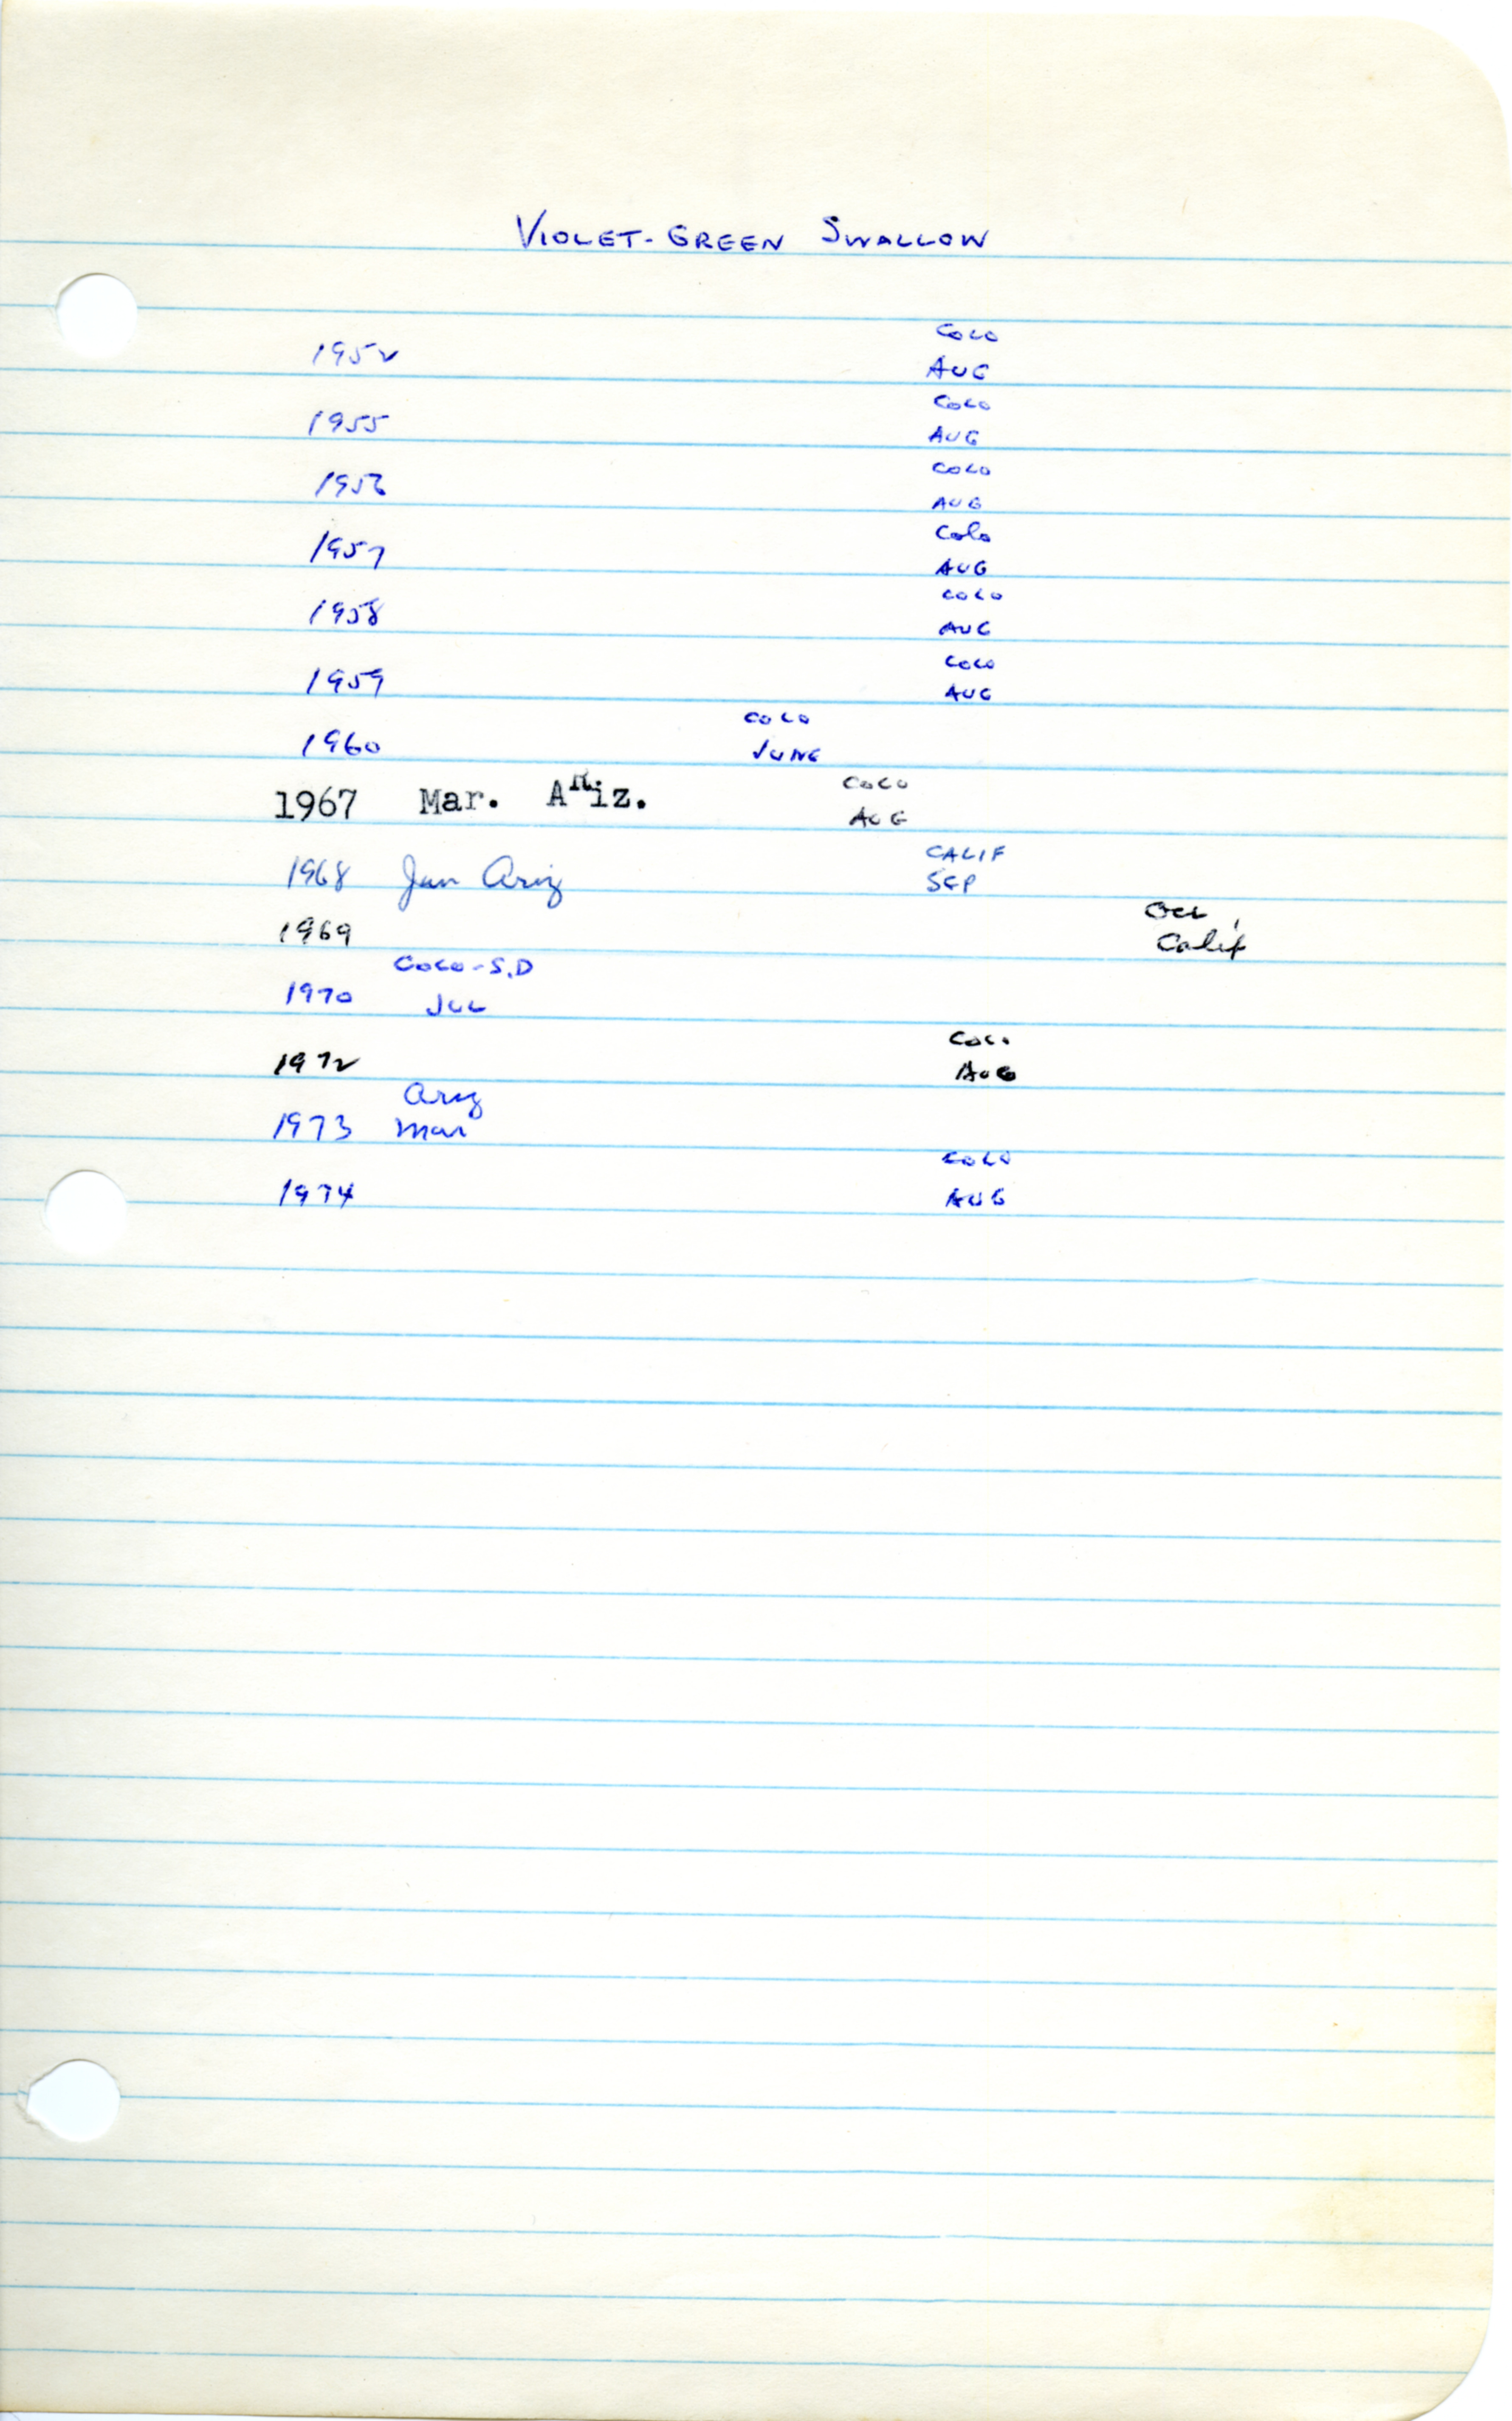 VIOLET-GREEN SWALLOW
COLO
1952 AUG
COLO
1955 AUG
COLO
1956 AUG
Colo
1957 AUG
COLO
1958 AUG
COLO
1959 AUG
COLO
1960 JUNE
COLO
1967 Mar. ARiz. AUG
CALIF
1968 Jan Ariz SEP
Oct,
1969 Calif
COLO-S.D
1970 JUL
COLO
1972 AUG
Ariz
1973 Mar
COLO
1974 AUG